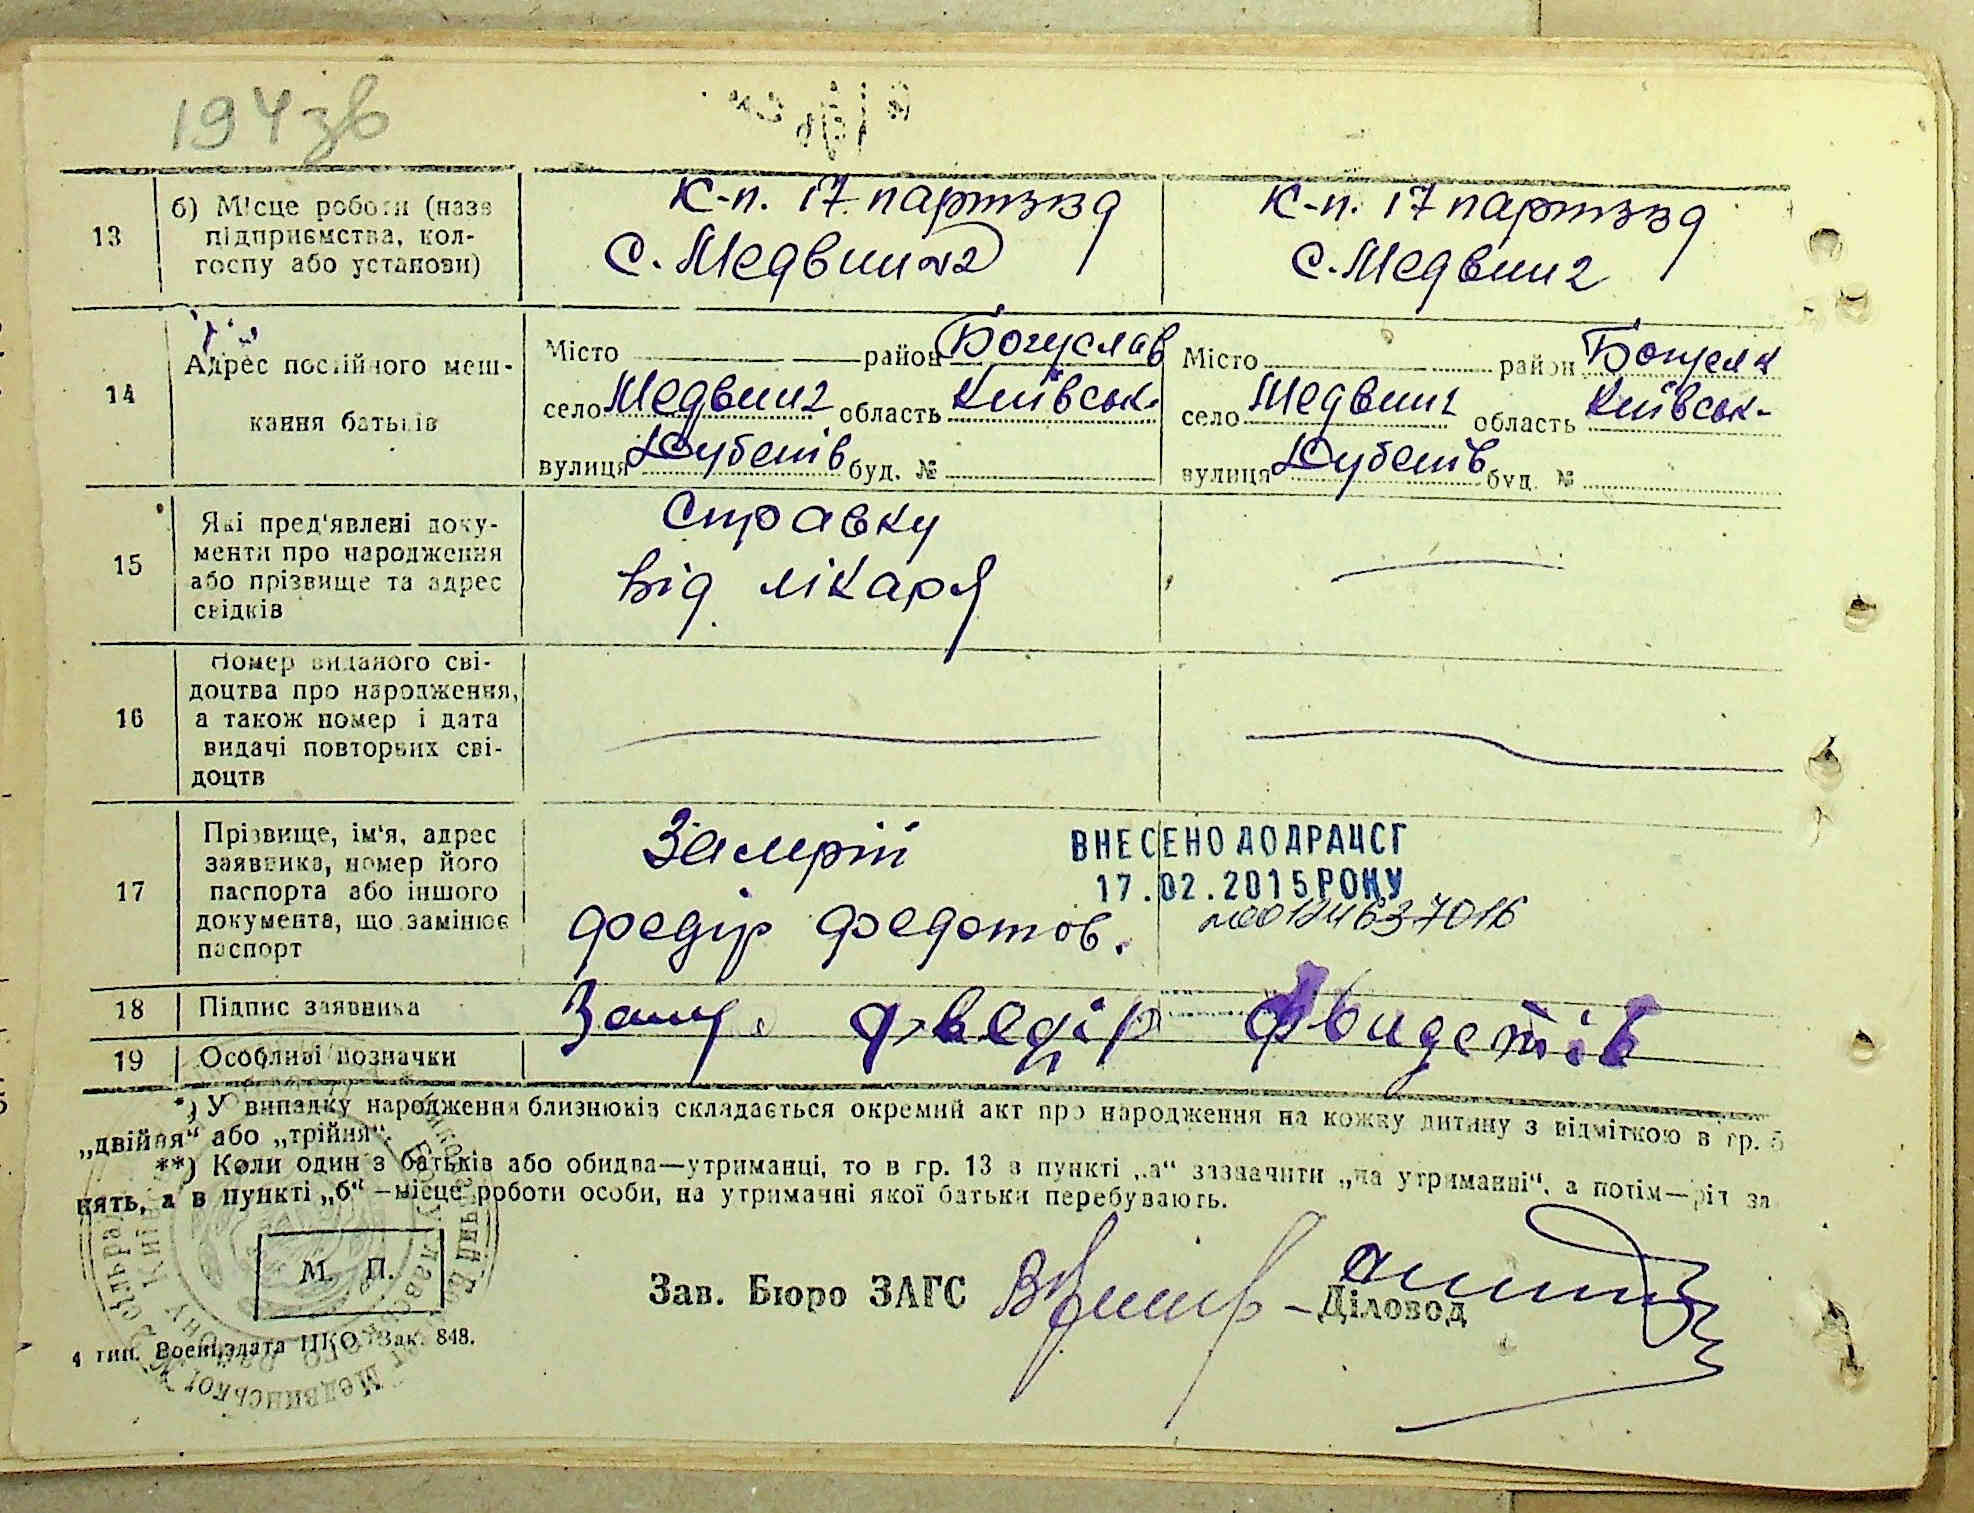 194зв
13
б) Місце роботи (назв
підприємства, кол-
госпу або установи)
к-п. 17 партззд
с. Медвин
к-п. 17 партззд
с. Медвин
14
Адрес постійного меш-
кання батьків
Місто район Богуслав
село Медвин область Київськ.
вулиця Дубенів буд. №
Місто район Богусл
село Медвин область Київськ-
вулиця Дубенів буд. №
15
Які пред'явлені доку-
менти про народження
або прізвище та адрес
свідків
Справку
від лікаря
16
Номер виданого сві-
доцтва про народження,
а також номер і дата
видачі повторних сві-
доцтв
17
Прізвище, ім'я, адрес
заявника, номер його
паспорта або іншого
документа, що замінює
паспорт
Замрій
Федір Федотов.
ВНЕСЕНО ДО ДРАЦСГ
17.02.2015 РОКУ
18
Підпис заявника
19
Особливі позначки
*) У випадку народження близнюків складається окремий акт про народження на кожну дитину з відміткою в гр. 5
„двійня“ або „трійня“.
**) Коли один з батьків або обидва—утриманці, то в гр. 13 в пункті „а“ зазначити „на утриманні“, а потім—рід за
нять, а в пункті „б“ —місце роботи особи, на утриманні якої батьки перебувають.
М. П.
Зав. Бюро ЗАГС
Діловод
4 тип. Воениздата НКО. Зак. 848.